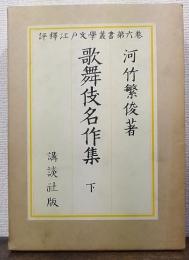 評釋江戸文學叢書第六卷
河竹繁俊著
歌舞伎名作集 下
講談社版